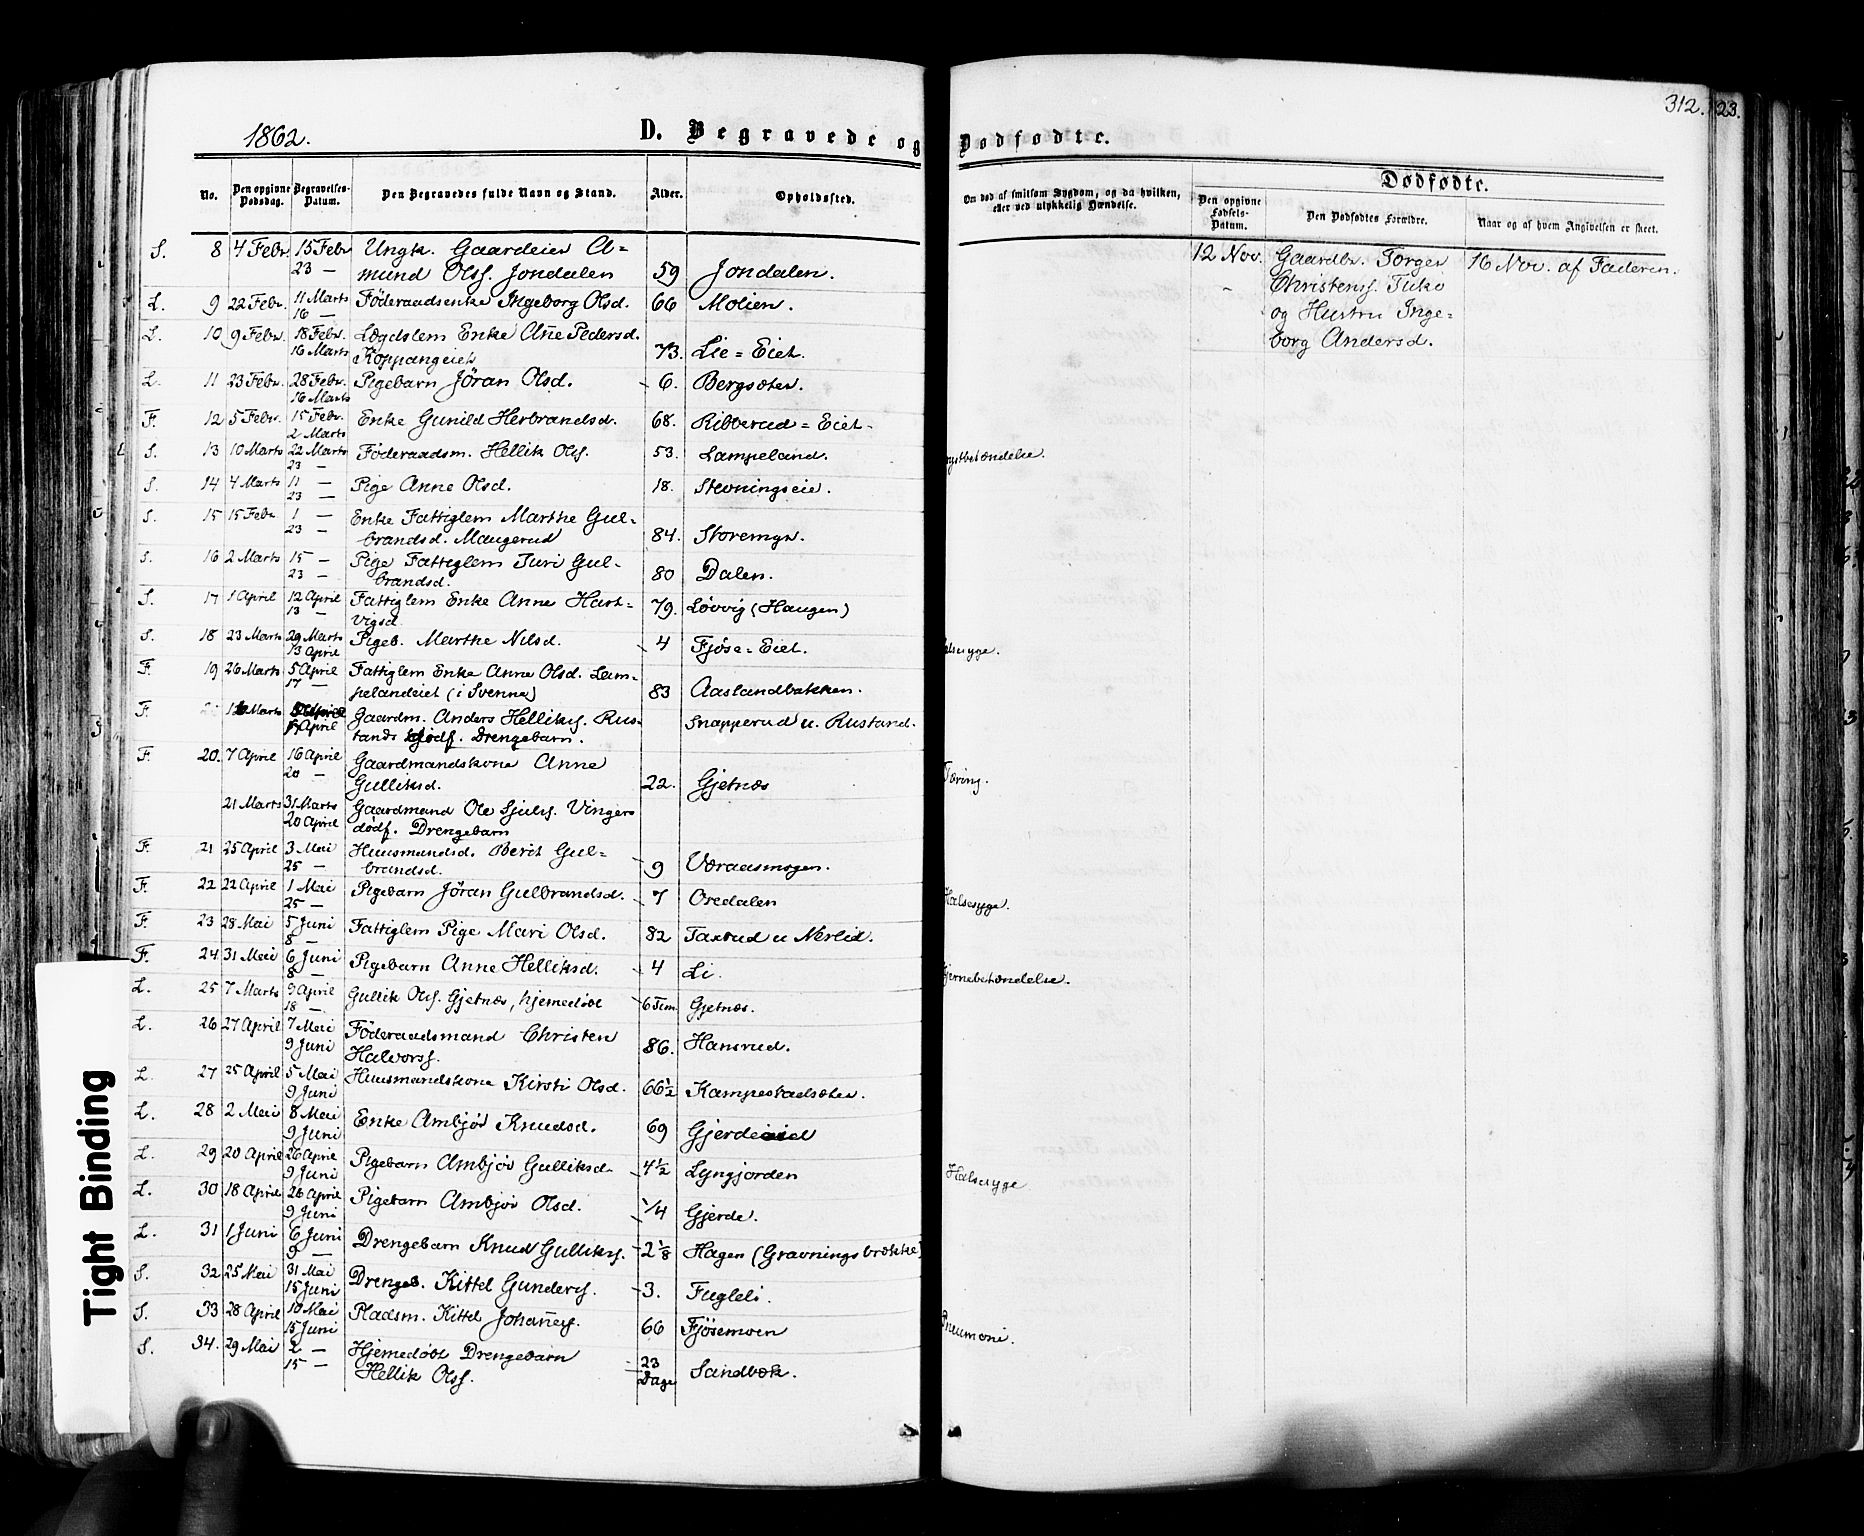 312. 123.
1862.
D. Begravede og Dødfødte.
No. Den opgivne Dødsdag. Begravelses-Datum. Den Begravedes fulde Navn og Stand. Alder. Opholdssted. Om død af smitsom Sygdom, og da hvilken, eller ved ulykkelig Hændelse.
Dødfødte.
Den opgivne Fødsels-Datum. Den Dødfødtes Forældre. Naar og af hvem Angivelsen er skeet.
S. 8 4 Febr. 15 Febr Ungk. Gaardeier A=
23 — mund Olss. Jondalen 59 Jondalen.
L. 9 22 Febr. 11 Marts Föderaadsenke Ingeborg Olsd. 66 Molien.
16 —
L. 10 9 Febr. 18 Febr. Lægdslem Enke Ane Pedersd.
16 Marts Koppangeiet 73. Lie=Eiet.
L. 11 23 Febr. 28 Febr. Pigebarn Jöran Olsd. 6. Bergsæter.
16 Marts
F. 12 5 Febr. 15 Febr. Enke Gunild Herbrandsd. 68. Ribberud=Eiet.
2 Marts
S. 13 10 Marts 22 Marts Föderaadsm. Hellik Olss. 53. Lampeland. rystbetændelse.
23 —
S. 14 4 Marts 11 — Pige Anne Olsd. 18. Stevningseie.
23 —
S. 15 15 Febr 1 — Enke Fattiglem Marthe Gul=
23 — brandsd. Maugerud 84. Storemyr.
S. 16 2 Marts 15 — Pige Fattiglem Turi Gul=
23 — brandsd. 80 Dalen.
S. 17 1 April 12 April Fattiglem Enke Anne Hart=
13 — vigsd 79. Løvvig (Haugen)
S. 18 23 Marts 29 Marts Pigeb. Marthe Nilsd. 4 Fjøse=Eiet. alssyge.
13 April
F. 19 26 Marts 5 April Fattiglem Enke Anne Olsd. Lam=
17 — pelandeiet (i Svenne) 83 Aaslandbakken.
F. Marts Gaardm. Anders Helliks. Rus=
April tands dødf. Drengebarn. Snapperud u. Rustand.
F. 20. 7 April 16 April Gaardmandskone Anne
20 — Gulliksd. 22. Gjetnæs Tæring.
21 Marts 31 Marts Gaardmand Ole Sjuls. Vingers
20 April dødf. Drengebarn
F. 21 25 April 3 Mai Huusmandsd. Berit Gul=
25 — brandsd. 9 Væraasmogen.
F. 22 22 April 1 Mai Pigebarn Jöran Gulbrandsd. 7 Oredalen Halssyge.
25 —
F. 23 28 Mai 5 Juni Fattiglem Pige Mari Olsd. 82 Taxrud u Nerlid.
8 —
F. 24 31 Mai 6 Juni Pigebarn Anne Helliksd. 4 Li. Hjernebetændelse.
8 —
L. 25 7 Marts 9 April Gullik Olss. Gjetnæs, hjemedøbt 6 Tim Gjetnæs.
18 —
L. 26 27 April 7 Mai Föderaadsmand Christen
9 Juni Halvorss. 86. Hansrud.
L. 27 25 April 5 Mai Huusmandskone Kirsti Olsd. 66½ Kampestadsæter.
9 Juni
L. 28 2 Mai 8 Mai Enke Ambjør Knudsd. 69
9 Juni
L. 29 20 April 26 April Pigebarn Ambjör Gulliksd. 4½ Lyngjorden Halssyge
9 Juni
L. 30 18 April 26 April Pigebarn Ambjör Olsd. ¼ Gjerde.
9 Juni
L. 31 1 Juni 6 Juni Drengebarn Knud Gulliks. 2⅛ Hagen (Gravningsbrække)
9 —
S. 32 25 Mai 31 Mai Drengeb. Kittel Gunders. 3. Fugleli.
15 Juni
S. 33 28 April 10 Mai Pladsm. Kittel Johaness. 66 Fjösemoen Pneumoni.
15 Juni
S. 34. 29 Mai 2 — Hjemedøbt Drengebarn 23
15 — Hellik Olss. Dage Sandbæk.
12 Nov. Gaardbr. Torger 16 Nov. af Faderen.
Christenss.
og Hustru Inge=
borg Andersd.
Tight Binding